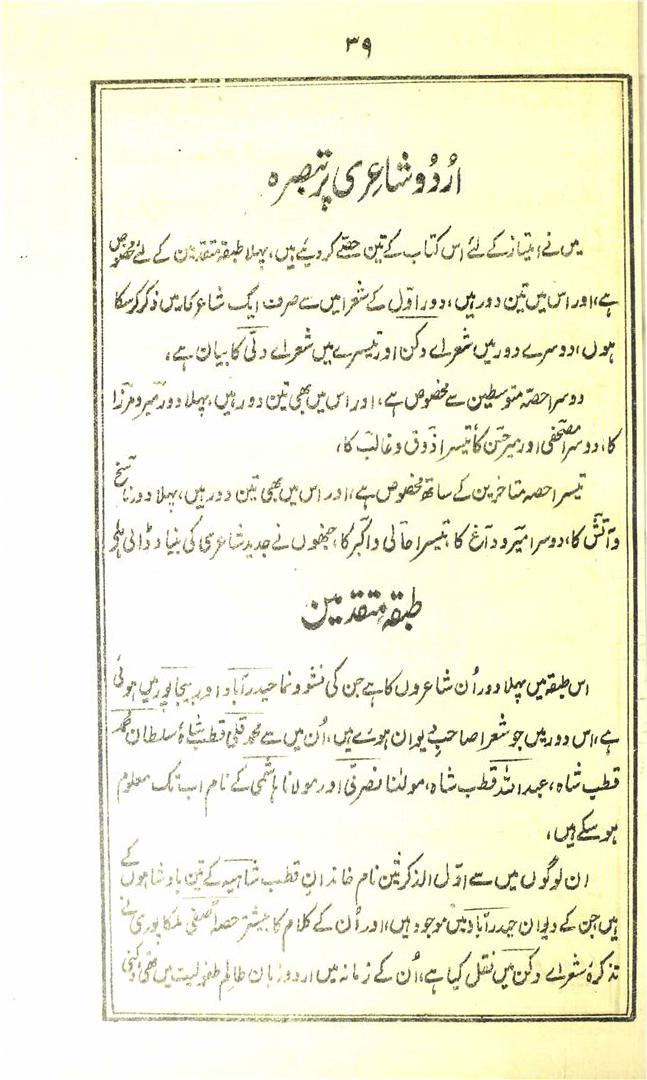 ۳۹
اُردو شاعری پر تبصرہ
میں نے امتیاز کے لئے اس کتاب کے تین حصّے کر دیئے ہیں، پہلا طبقۂ متقدمین کے لئے مخصوص
ہے، اور اس میں تین دور ہیں، دورِ اوّل کے شعرا میں سے صرف ایک شاعر کا میں ذکر کر سکا
ہوں، دوسرے دور میں شعراے دکن اور تیسرے میں شعراے دلّی کا بیان ہے،
دوسرا حصّہ متوسطین سے مخصوص ہے، اور اس میں بھی تین دور ہیں، پہلا دور میرؔ و مرزاؔ
کا، دوسرا مصحفیؔ اور میر حسنؔ کا، تیسرا ذوقؔ و غالبؔ کا،
تیسرا حصہ متاخرین کے ساتھ مخصوص ہے، اور اس میں بھی تین دور ہیں، پہلا دور ناسخؔ
و آتشؔ کا، دوسرا امیرؔ و داغؔ کا، تیسرا حالیؔ و اکبرؔ کا، جنھوں نے جدید شاعری کی بنیاد ڈالی ہے،
طبقہ متقدمین
اس طبقہ میں پہلا دور اُن شاعروں کا ہے جن کی نشو و نما حیدرآباد اور بیجاپور میں ہوئی
ہے، اس دور میں جو شعرا صاحبِ دیوان ہوے ہیں، اُن میں سے محمد قلی قطب شاہ، سلطان محمد
قطب شاہ، عبداللہ قطب شاہ، مولٰنا نصرتی اور مولانا ہاشمی کے نام اب تک معلوم
ہو سکے ہیں،
ان لوگوں میں سے اوّل الذکر تین نام خاندانِ قطب شاہیہ کے تین بادشاہوں کے
ہیں جن کے دیوان حیدرآباد میں موجود ہیں، اور اُن کے کلام کا بیشتر حصہ آصفی ملکاپوری نے
تذکرۂ شعراے دکن میں نقل کیا ہے، اُن کے زمانہ میں اردو زبان عالمِ طفولیت میں تھی، دکنی